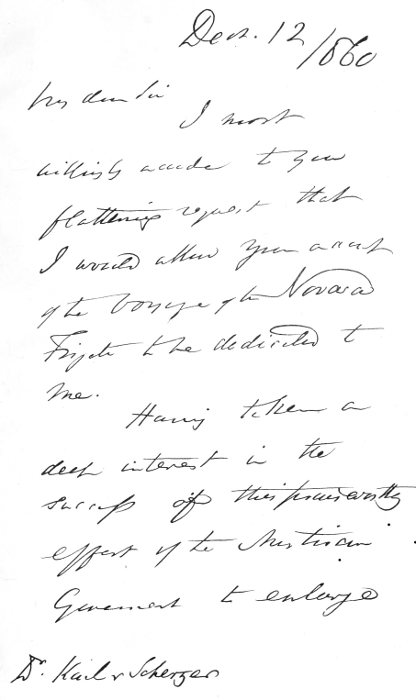 Decr. 12 /860
My dear Sir
I most
willingly accede to your
flattering request that
I would allow your account
of the Voyage of the Novara
Frigate to be dedicated to
me.
Having taken a
deep interest in the
success of this praiseworthy
effort of the Austrian
Government to enlarge
Dr. Karl v Scherzer